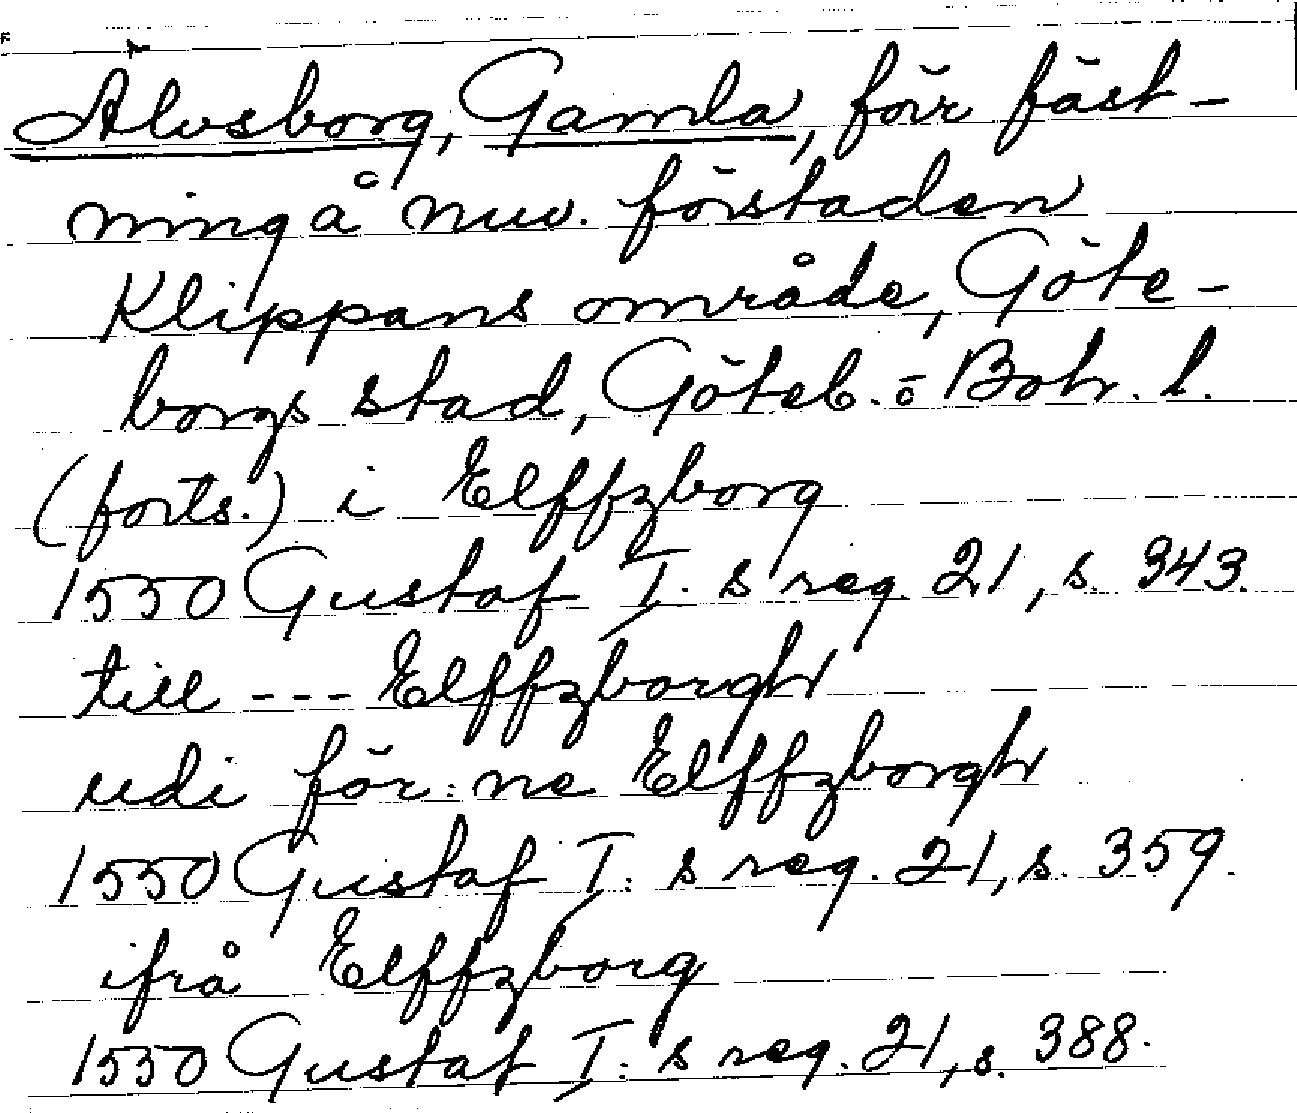 Älvsborg, Gamla, förr fäst-
ning å nuv. förstaden
Klippans område, Göte-
borgs stad, Göteb. o Boh. l.
(forts.) i Elffzborg
1550 Gustaf I: s reg. 21, s. 343.
till --- Elffzborgh
udi för: ne Elffzborgh
1550 Gustaf I: s reg. 21, s. 359.
ifrå Elffzborg
1550 Gustaf I: s reg. 21, s. 388.